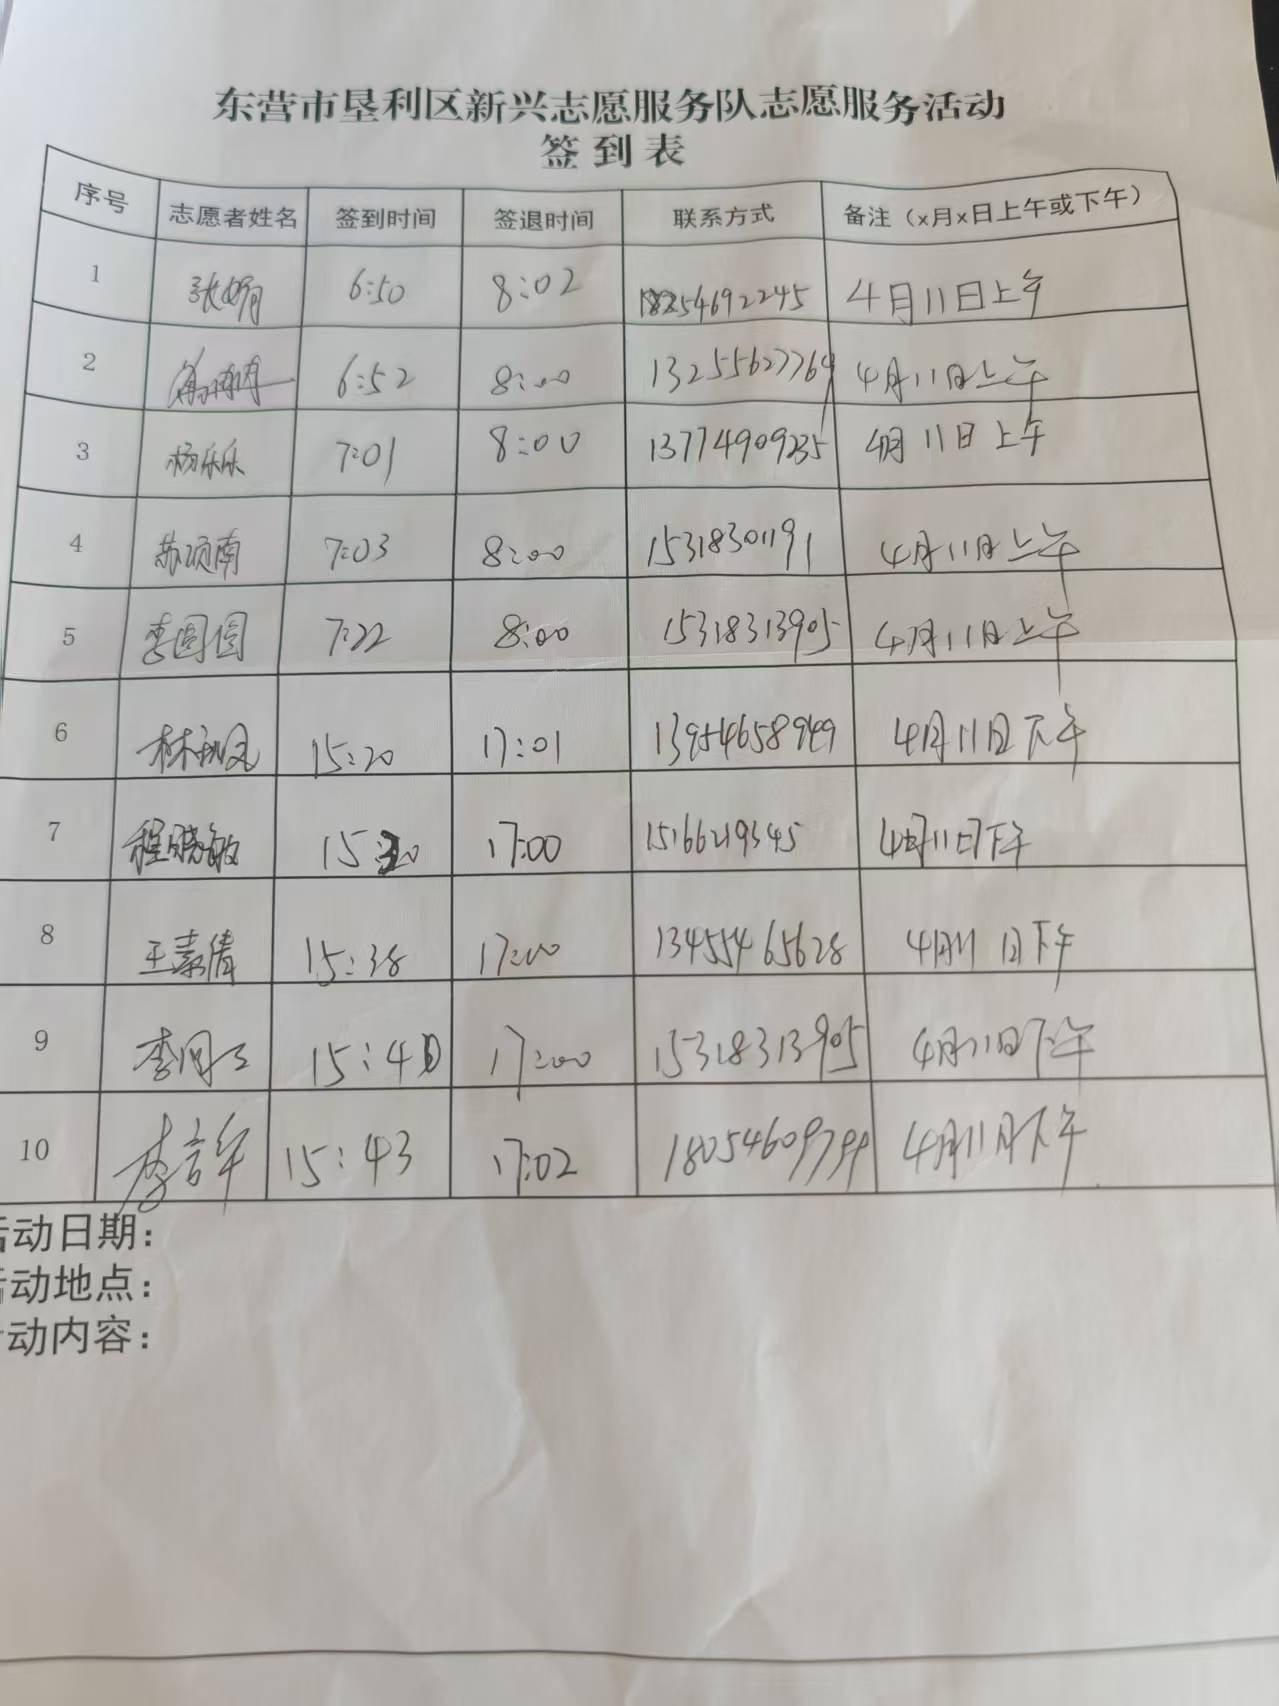 东营市垦利区新兴志愿服务队志愿服务活动
签到表
序号 志愿者姓名 签到时间 签退时间 联系方式 备注（x月x日上午或下午）
1 张娟 6:50 8:02 18254692245 4月11日上午
2 6:52 8:00 13255627769 4月11日上午
3 杨乐乐 7:01 8:00 13774909235 4月11日上午
4 苏颂南 7:03 8:00 15318301191 4月11日上午
5 李圆圆 7:22 8:00 15318313905 4月11日上午
6 15:20 17:01 13954658949 4月11日下午
7 程晓敏 15:20 17:00 15166219345 4月11日下午
8 王素倩 15:38 17:00 13455465628 4月11日下午
9 15:40 17:00 15318313905 4月11日下午
10 李言午 15:43 17:02 18054609799 4月11日下午
活动日期：
活动地点：
活动内容：